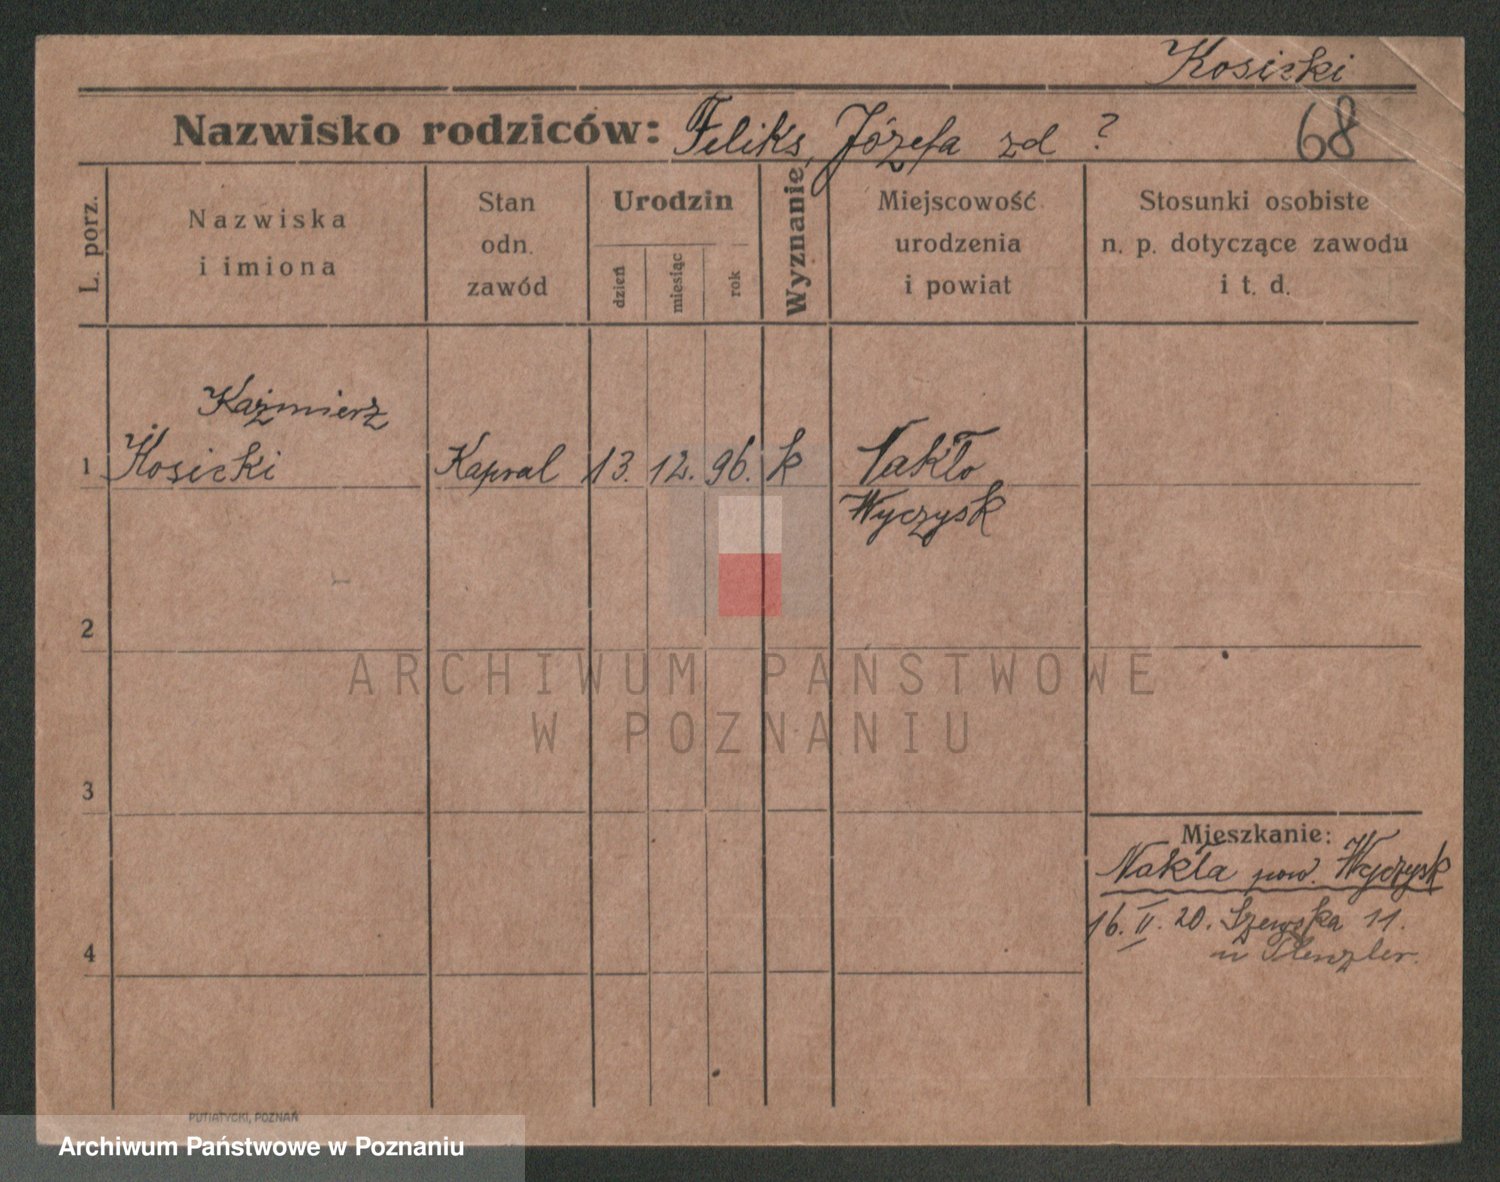 Kosicki
Nazwisko rodziców: Feliks, Józefa zd ?
68
L. porz.
Nazwiska
i imiona
Stan
odn.
zawód
Urodzin
dzień
miesiąc
rok
Wyznanie
Miejscowość
urodzenia
i powiat
Stosunki osobiste
n. p. dotyczące zawodu
i t. d.
Kaźmierz
1 Kosicki Kapral 13. 12. 96. k Nakło
Wyrzysk
2
ARCHIWUM PAŃSTWOWE
W POZNANIU
3
Mieszkanie:
Nakła pow. Wyrzysk
16. II. 20. Szewska 11.
u
4
PUTIATYCKI, POZNAŃ
Archiwum Państwowe w Poznaniu